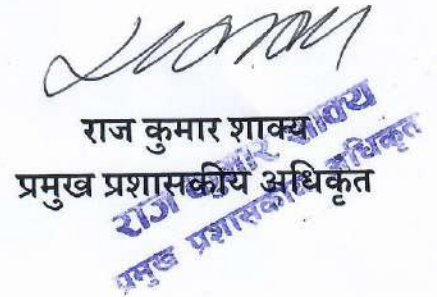 राज कुमार शाक्य
प्रमुख प्रशासकीय अधिकृत
राज कुमार शाक्य
प्रमुख प्रशासकीय अधिकृत